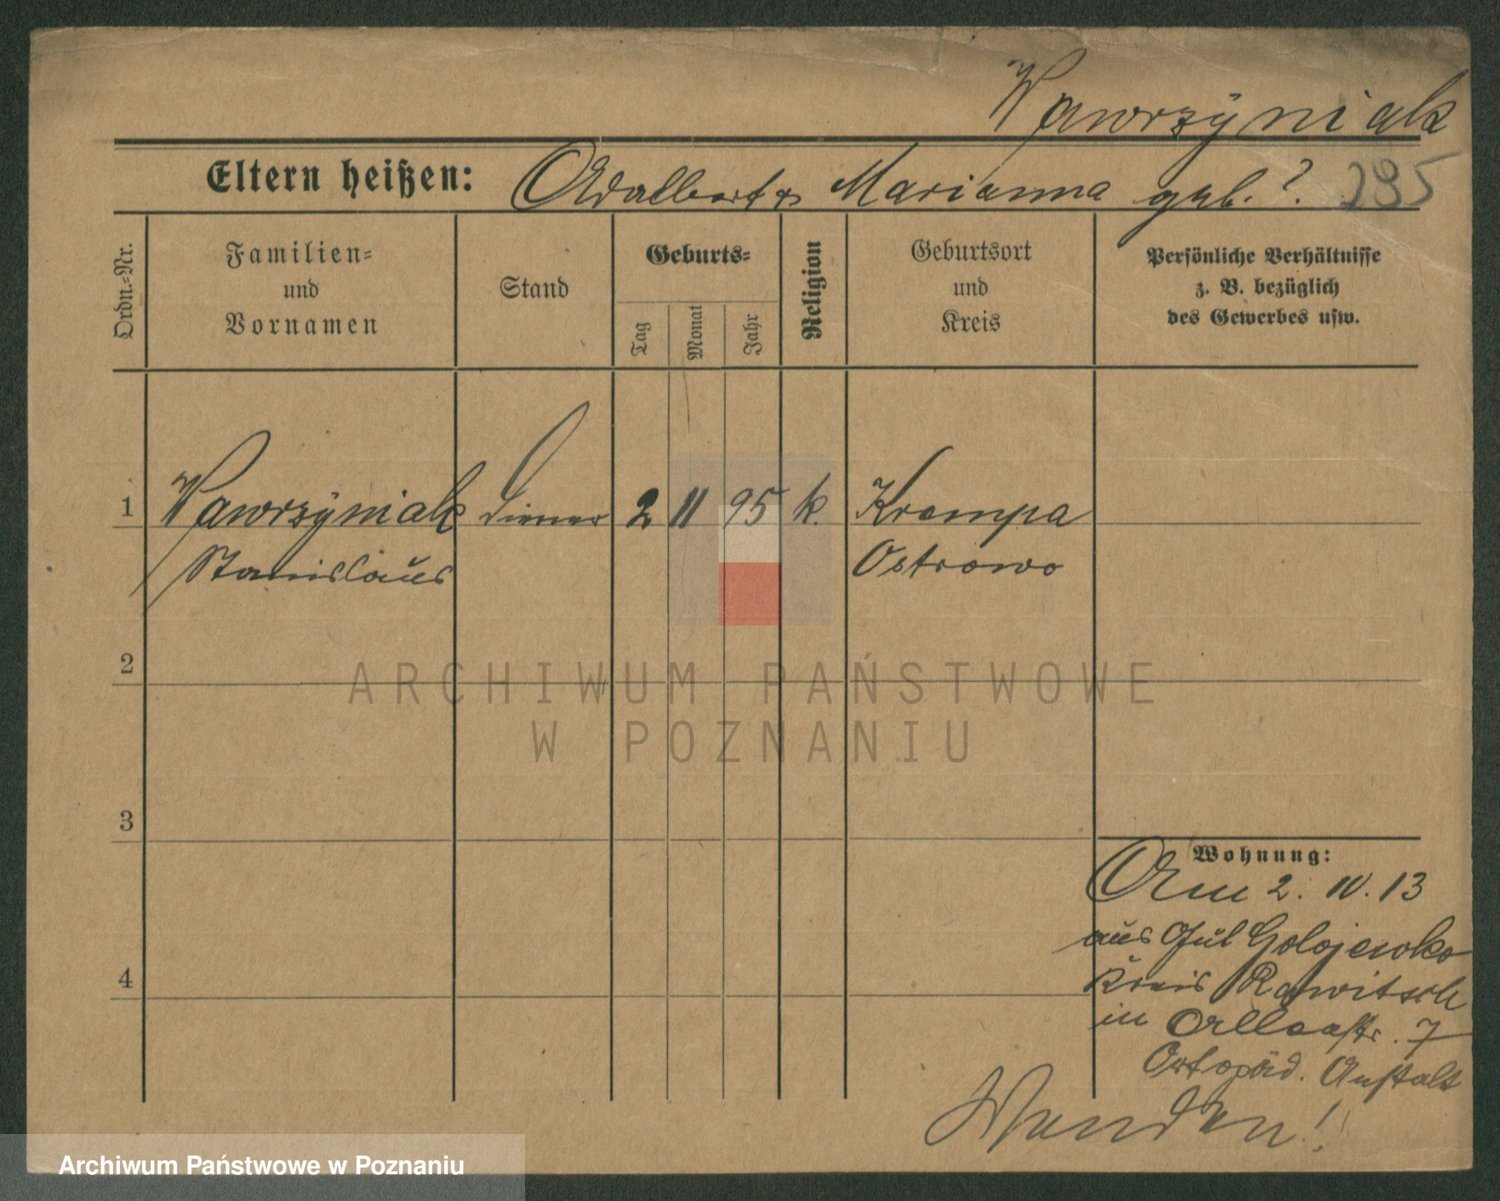 Wawrzyniak
Eltern heißen: Adalbert & Marianna geb. ? 295
Ordn.-Nr.
Familien-
und
Vornamen
Stand
Geburts-
Tag
Monat
Jahr
Religion
Geburtsort
und
Kreis
Persönliche Verhältnisse
z. B. bezüglich
des Gewerbes usw.
1 Wawrzyniak Diener 2 11 95 k. Krempa
Stanislaus Ostrowo
2
ARCHIWUM PAŃSTWOWE
W POZNANIU
3
Wohnung:
Am 2. 10. 13
aus Gut Golejewko
4
Kreis Rawitsch
in 7
Ortopäd. Anstalt
Wenden!
Archiwum Państwowe w Poznaniu